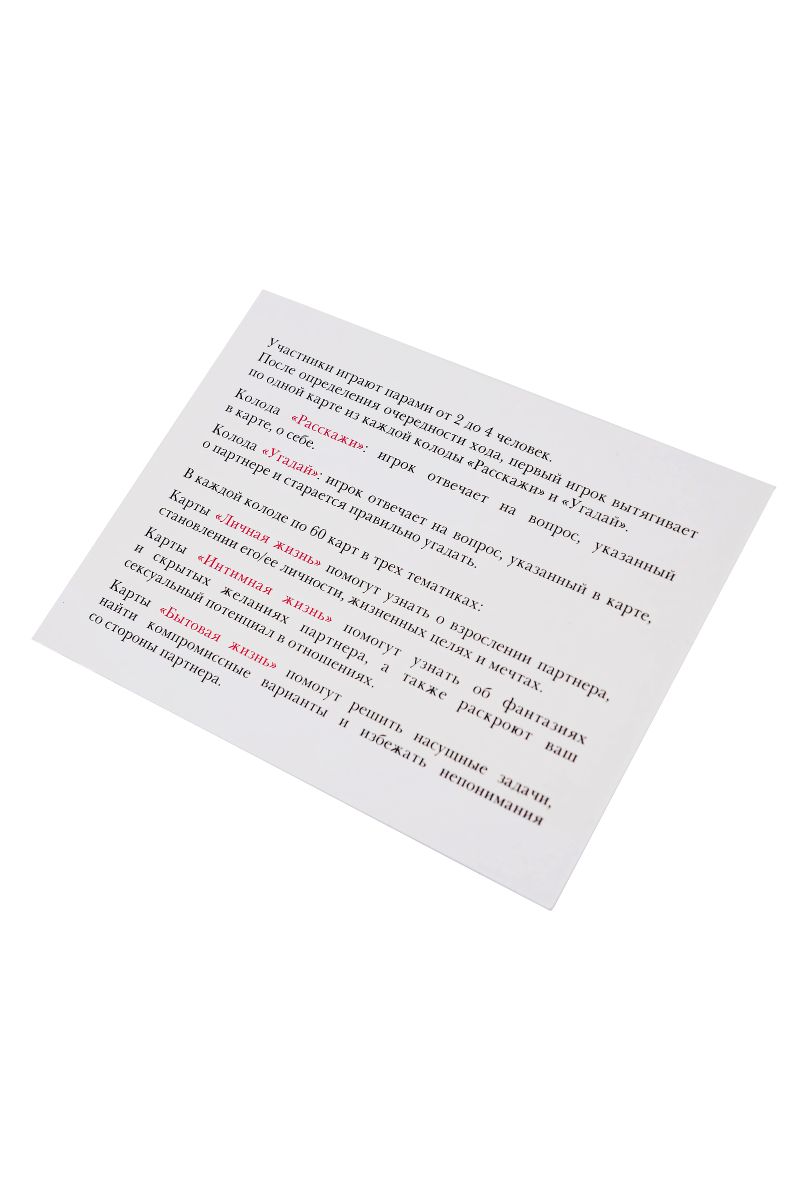 Участники играют парами от 2 до 4 человек.
После определения очередности хода, первый игрок вытягивает
по одной карте из каждой колоды «Расскажи» и «Угадай».
Колода «Расскажи»: игрок отвечает на вопрос, указанный
в карте, о себе.
Колода «Угадай»: игрок отвечает на вопрос, указанный в карте,
о партнере и старается правильно угадать.
В каждой колоде по 60 карт в трех тематиках:
Карты «Личная жизнь» помогут узнать о взрослении партнера,
становлении его/ее личности, жизненных целях и мечтах.
Карты «Интимная жизнь» помогут узнать об фантазиях
и скрытых желаниях партнера, а также раскроют ваш
сексуальный потенциал в отношениях.
Карты «Бытовая жизнь» помогут решить насущные задачи,
найти компромиссные варианты и избежать непонимания
со стороны партнера.